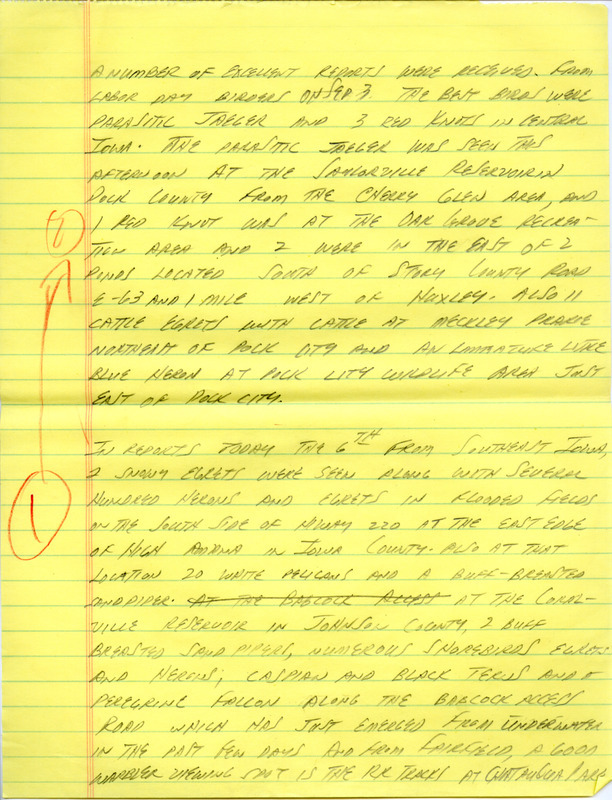 A NUMBER OF EXCELLENT REPORTS WERE RECEIVED. FROM
LABOR DAY BIRDERS ON SEP 3. THE BEST BIRDS WERE
PARASITIC JAEGER AND 3 RED KNOTS IN CENTRAL
IOWA. THE PARASITIC JAEGER WAS SEEN THIS
AFTERNOON AT THE SAYLORVILLE RESERVOIR IN
POLK COUNTY FROM THE CHERRY GLEN AREA, AND
1 RED KNOT WAS AT THE OAK GROVE RECREA-
TION AREA AND 2 WERE IN THE EAST OF 2
PONDS LOCATED SOUTH OF STORY COUNTY ROAD
E-63 AND 1 MILE WEST OF HUXLEY. ALSO 11
CATTLE EGRETS WITH CATTLE AT MECKLEY PRARIE
NORTHEAST OF POLK CITY AND AN IMMATURE LITTLE
BLUE HERON AT POLK CITY WILDLIFE AREA JUST
EAST OF POLK CITY.
IN REPORTS TODAY THE 6TH FROM SOUTHEAST IOWA,
2 SNOWY EGRETS WERE SEEN ALONG WITH SEVERAL
HUNDRED HERONS AND EGRETS IN FLOODED FIELDS
ON THE SOUTH SIDE OF HIWAY 220 AT THE EAST EDGE
OF HIGH AMANA IN IOWA COUNTY. ALSO AT THAT
LOCATION 20 WHITE PELICANS AND A BUFF-BREASTED
SANDPIPER. AT THE BABCOCK ACCESS AT THE CORAL-
VILLE RESERVOIR IN JOHNSON COUNTY, 2 BUFF
BREASTED SAND PIPERS, NUMEROUS SHOREBIRDS EGRETS
AND HERONS; CASPIAN AND BLACK TERNS AND A
PEREGRINE FALCON ALONG THE BABCOCK ACCESS
ROAD WHICH HAS JUST EMERGED FROM UNDERWATER
IN THE PAST FEW DAYS AND FROM FAIRFIELD, A GOOD
WARBLER VIEWING SPOT IS THE RR TRACKS AT CHATAUGUA PARK
1